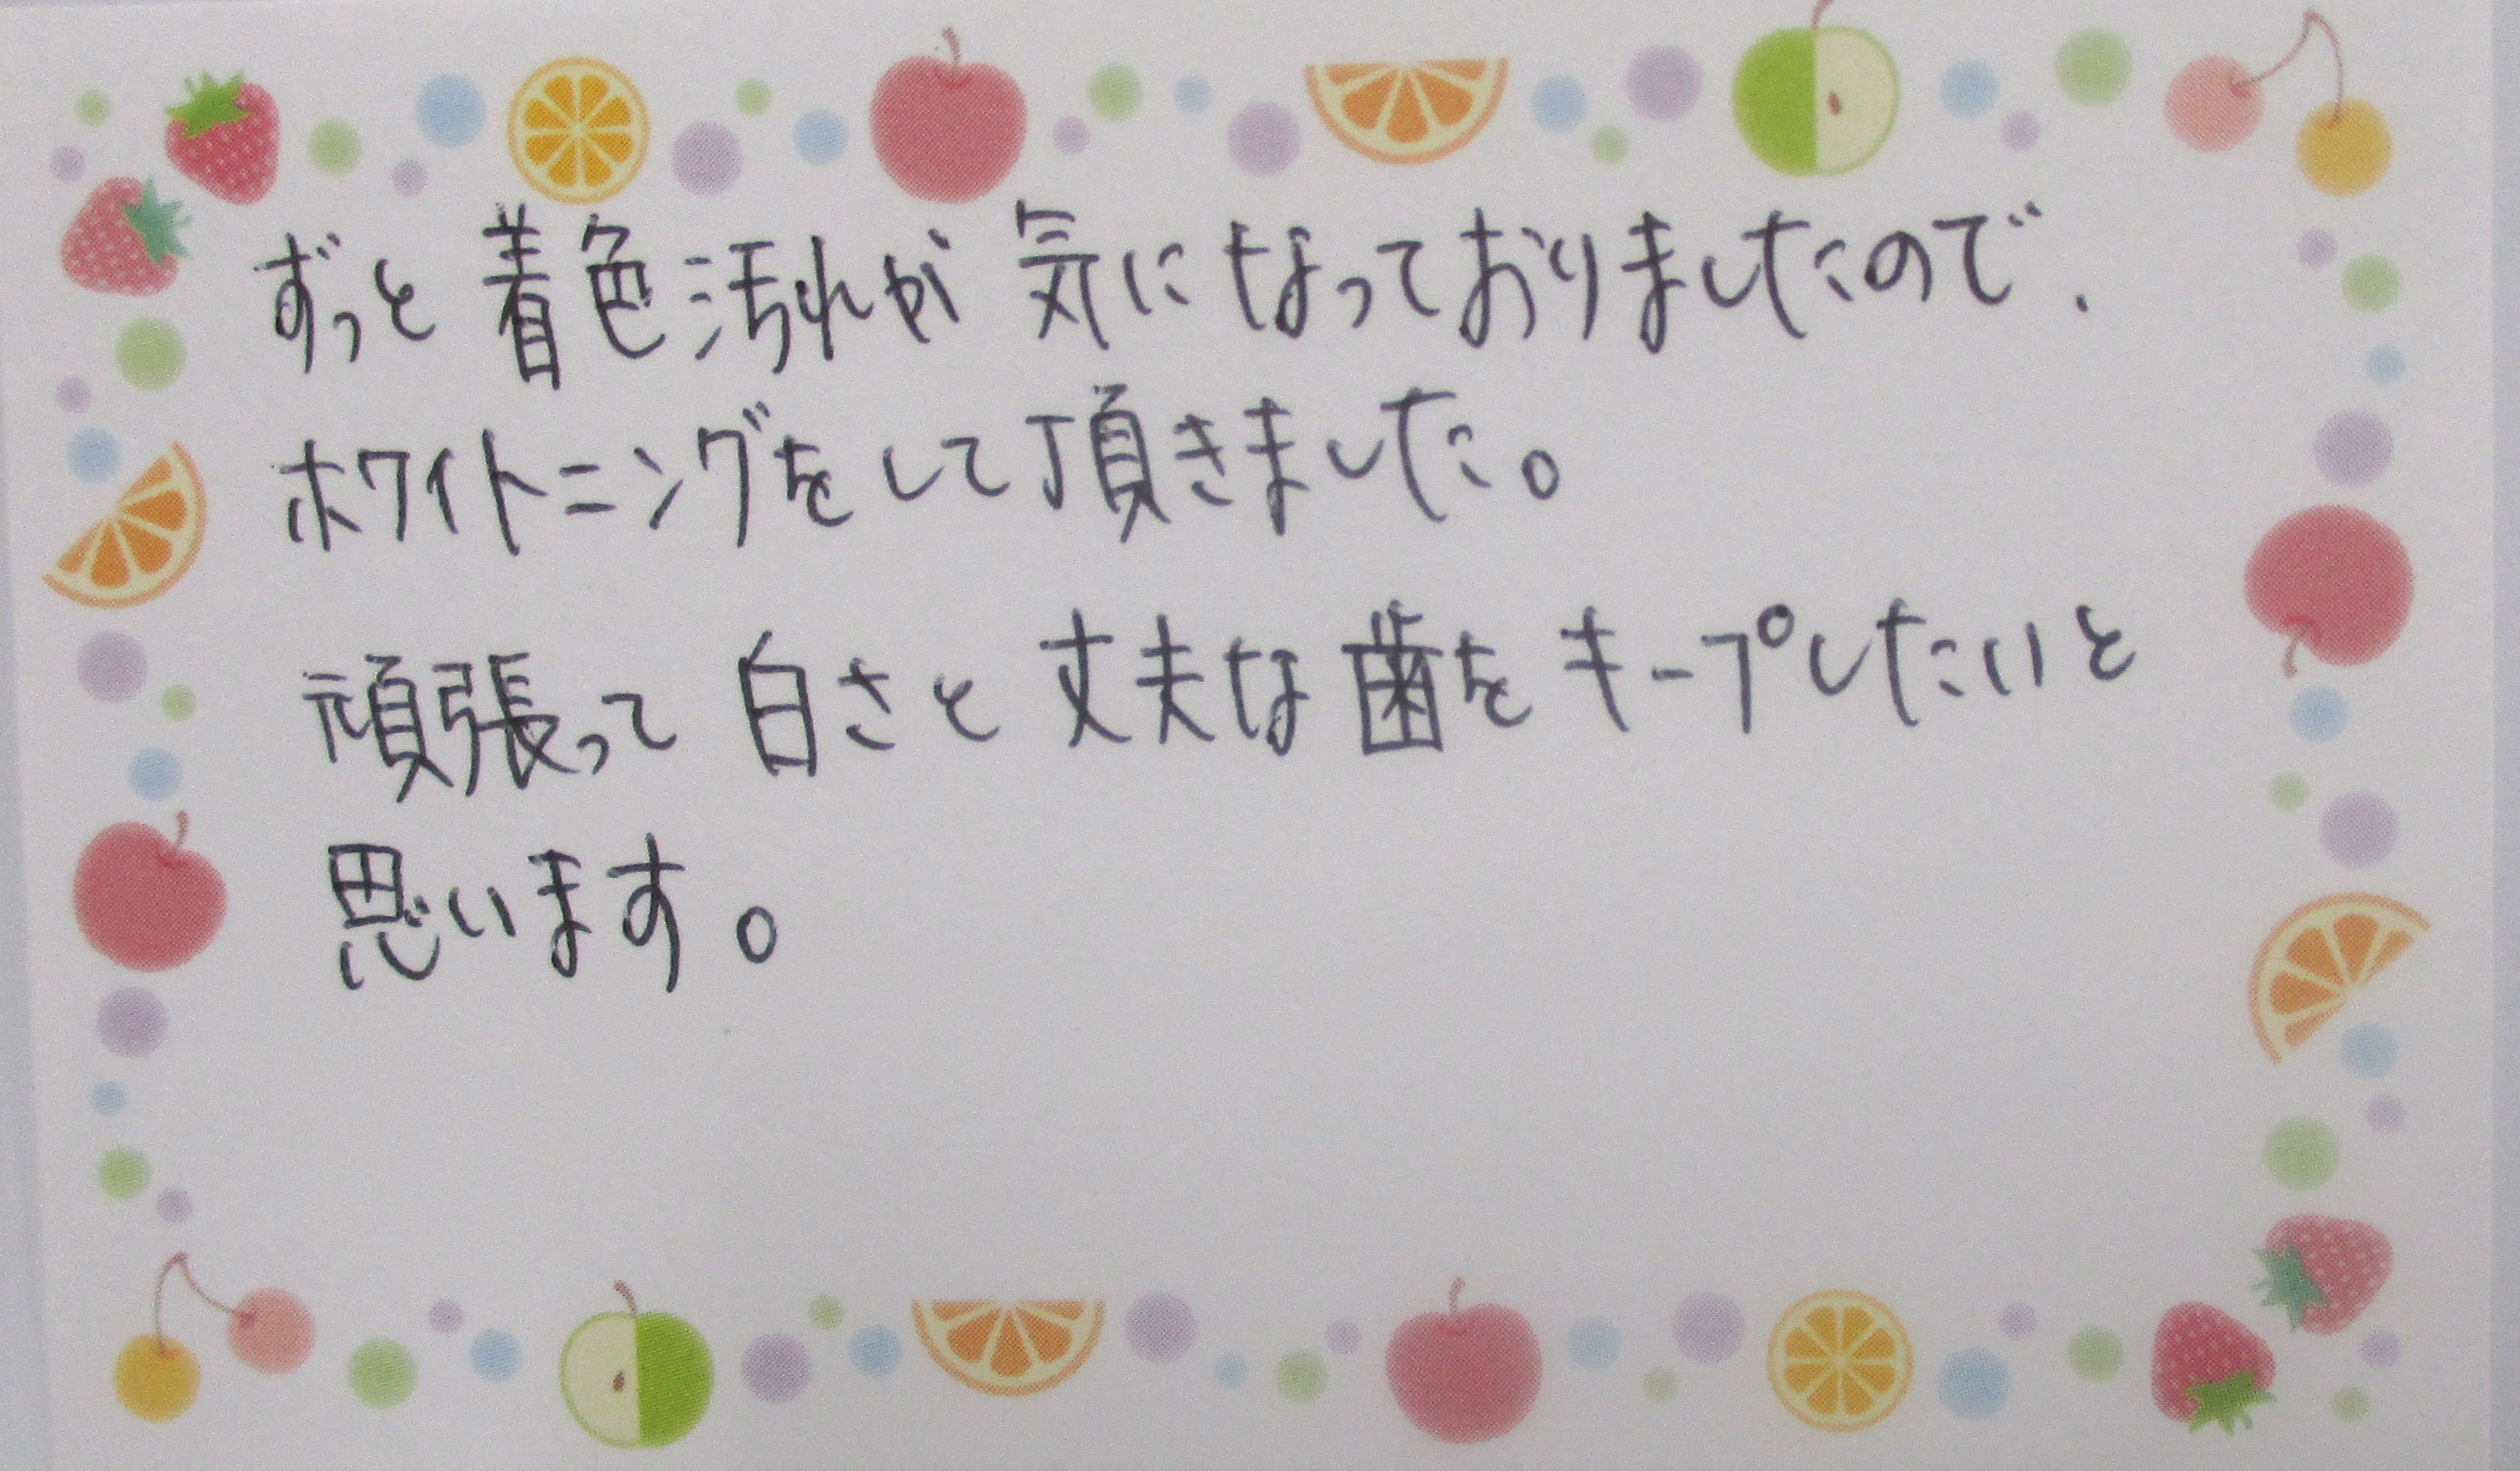 ずっと着色汚れが気になっておりましたので、
ホワイトニングをして頂きました。
頑張って白さと丈夫な歯をキープしたいと
思います。